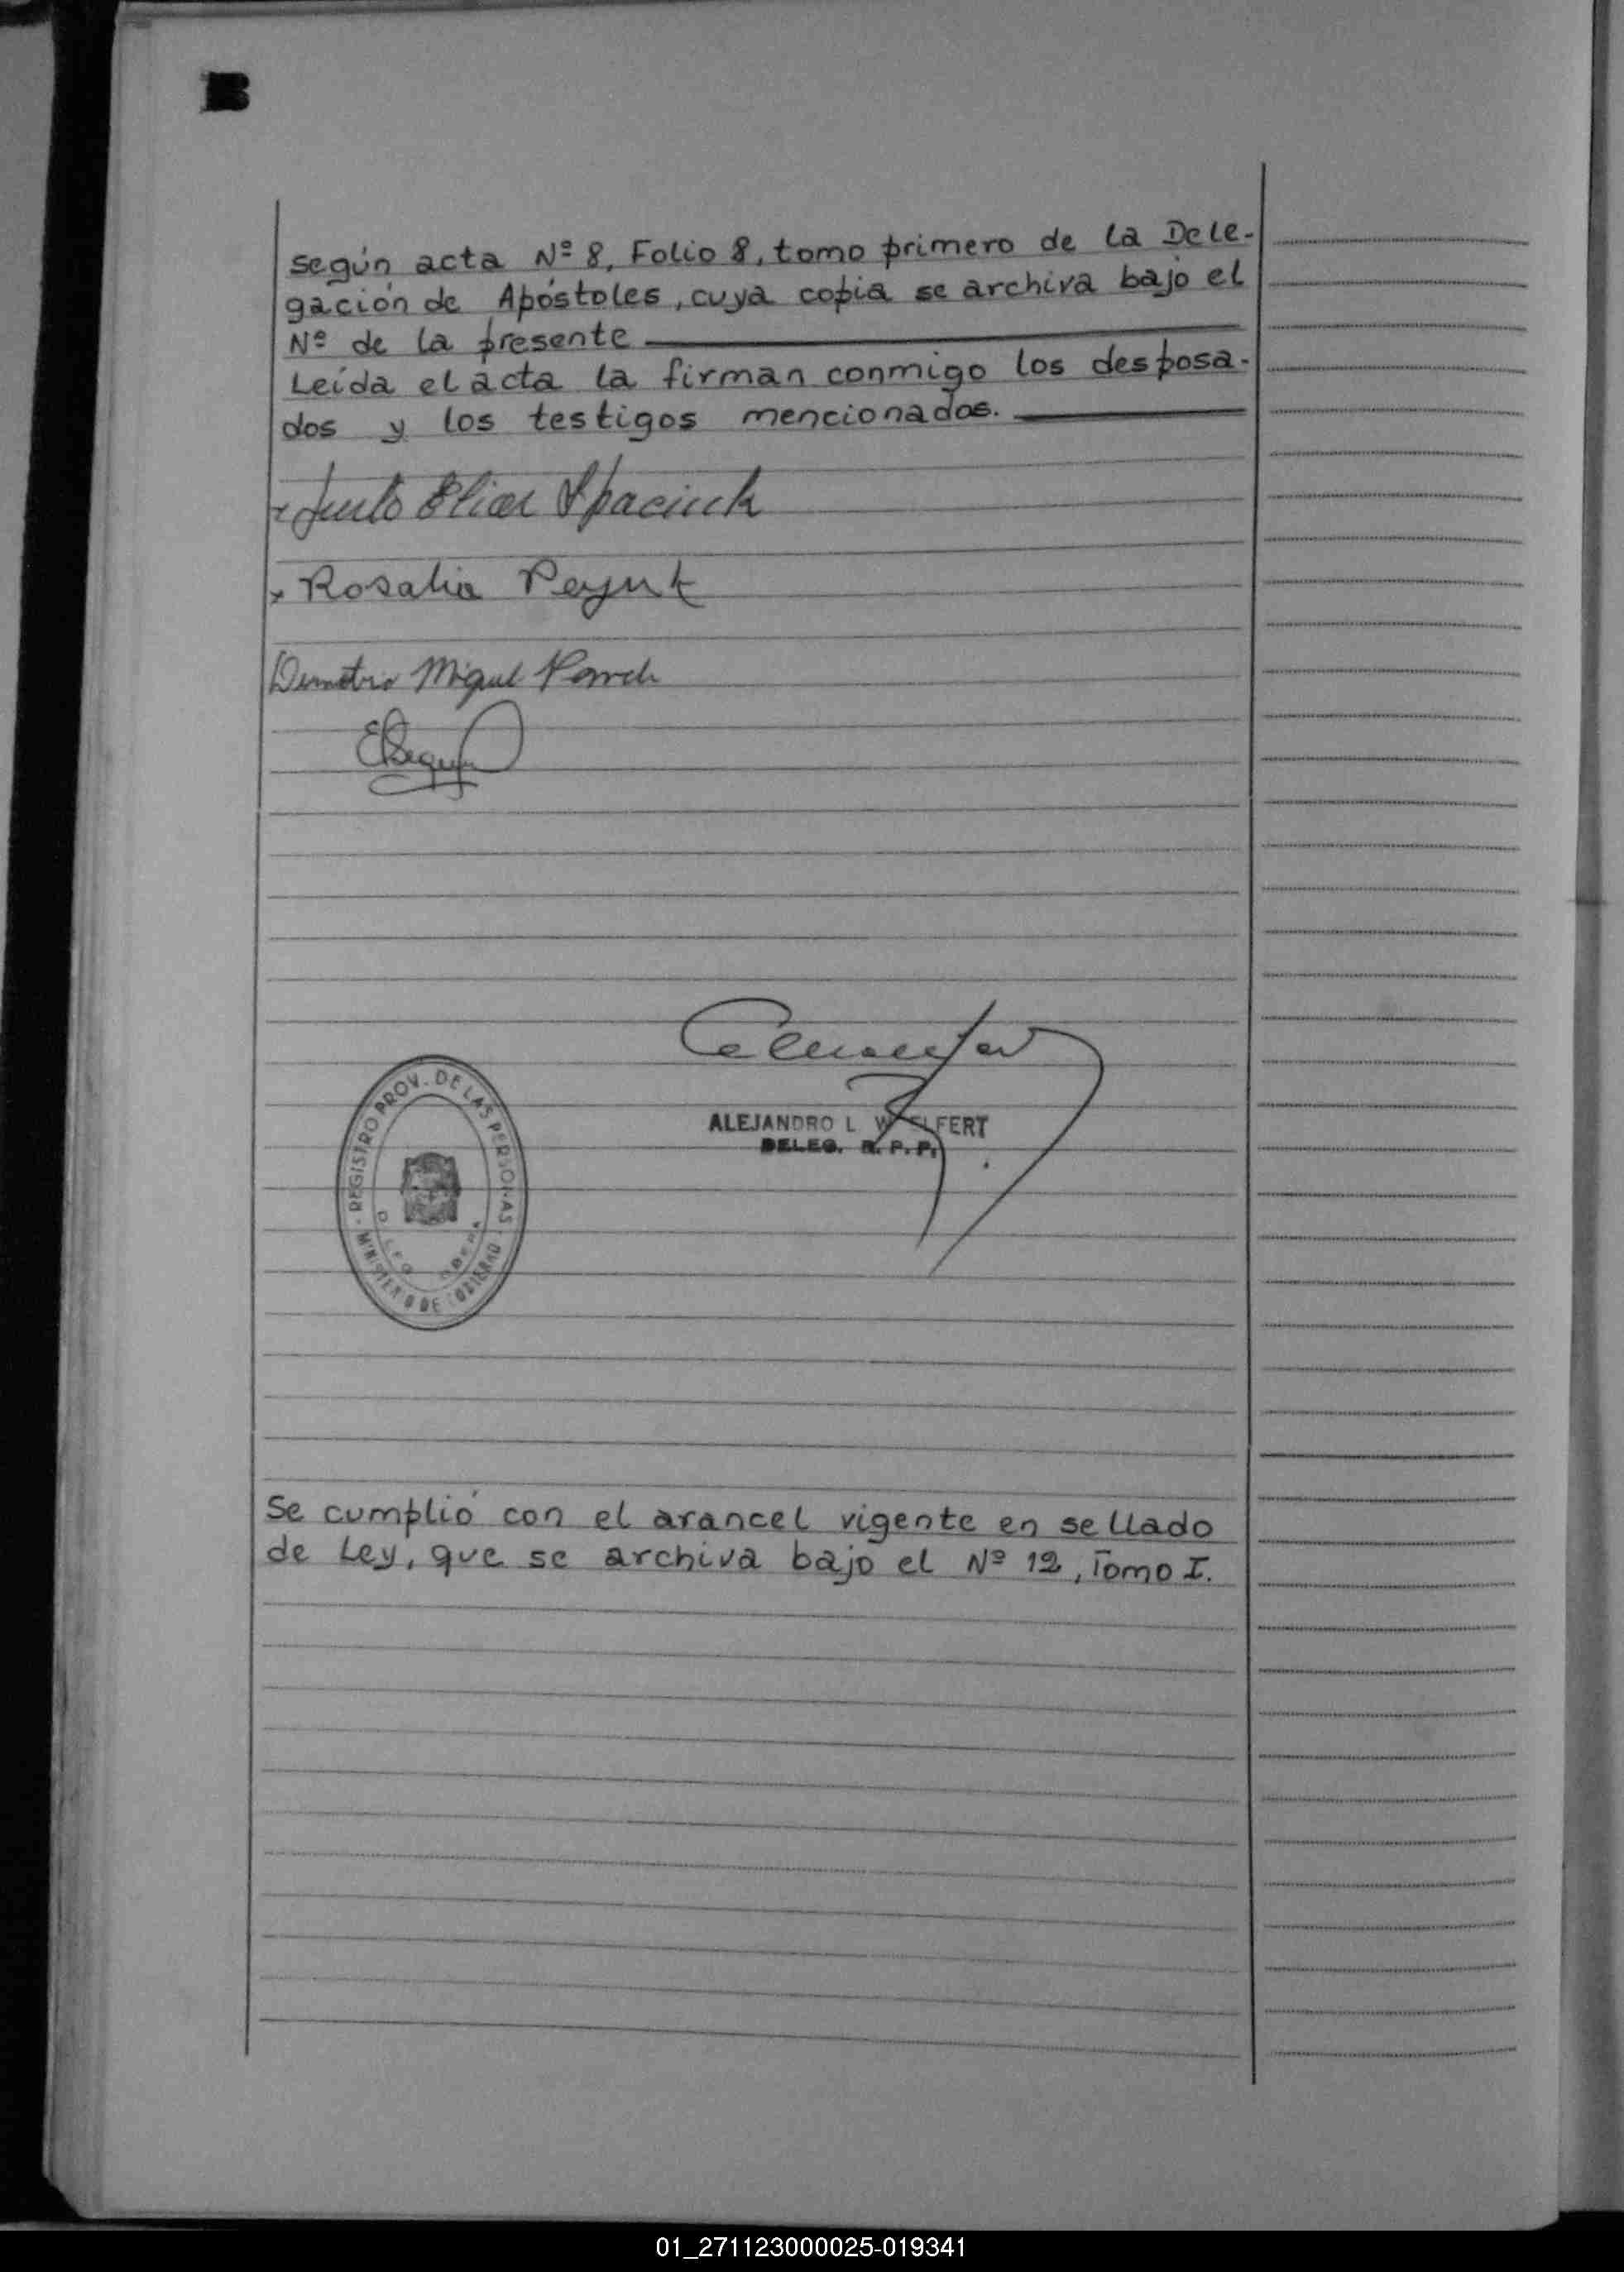 Según acta Nº 8, Folio 8, tomo primero de la Dele-
gación de Apóstoles, cuya copia se archiva bajo el
Nº de la presente
Leída el acta la firman conmigo los desposa-
dos y los testigos mencionados.
Justo Elias Spaciuk
Rosalia
Demetrio Miguel
REGISTRO PROV. DE LAS PERSONAS
MINISTERIO DE GOBIERNO
ALEJANDRO L
DELEG. R. P. P.
Se cumplió con el arancel vigente en sellado
de Ley, que se archiva bajo el Nº 12, Tomo I.
01_271123000025-019341